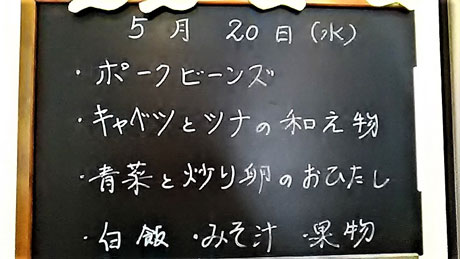 5月 20日(水)
・ポークビーンズ
・キャベツとツナの和え物
・青菜と炒り卵のおひたし
・白飯 ・みそ汁 ・果物